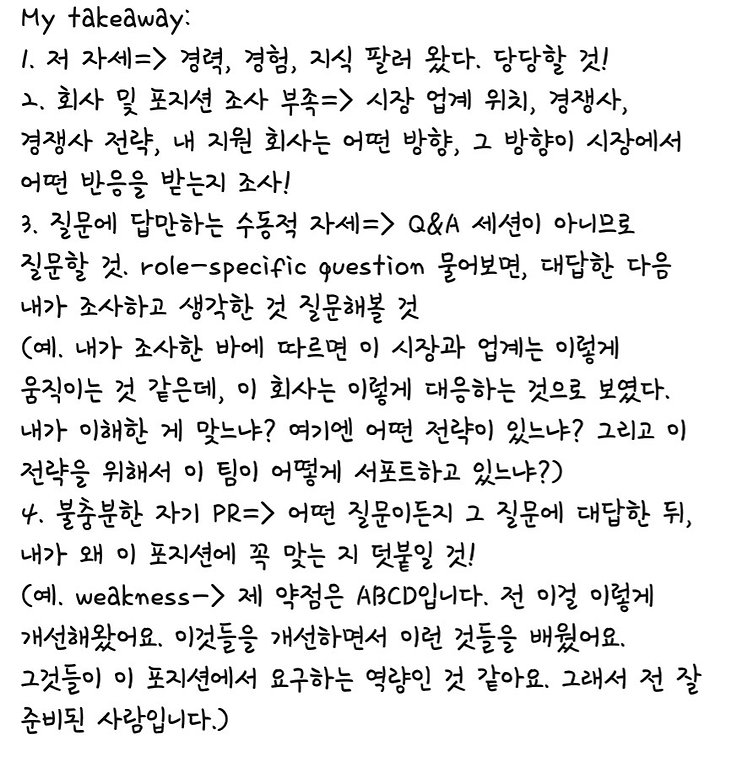 My takeaway:
1. 저 자세=> 경력, 경험, 지식 팔러 왔다. 당당할 것!
2. 회사 및 포지션 조사 부족=> 시장 업계 위치, 경쟁사,
경쟁사 전략, 내 지원 회사는 어떤 방향, 그 방향이 시장에서
어떤 반응을 받는지 조사!
3. 질문에 답만하는 수동적 자세=> Q&A 세션이 아니므로
질문할 것. role-specific question 물어보면, 대답한 다음
내가 조사하고 생각한 것 질문해볼 것
(예. 내가 조사한 바에 따르면 이 시장과 업계는 이렇게
움직이는 것 같은데, 이 회사는 이렇게 대응하는 것으로 보였다.
내가 이해한 게 맞느냐? 여기엔 어떤 전략이 있느냐? 그리고 이
전략을 위해서 이 팀이 어떻게 서포트하고 있느냐?)
4. 불충분한 자기 PR=> 어떤 질문이든지 그 질문에 대답한 뒤,
내가 왜 이 포지션에 꼭 맞는 지 덧붙일 것!
(예. weakness-> 제 약점은 ABCD입니다. 전 이걸 이렇게
개선해왔어요. 이것들을 개선하면서 이런 것들을 배웠어요.
그것들이 이 포지션에서 요구하는 역량인 것 같아요. 그래서 전 잘
준비된 사람입니다.)